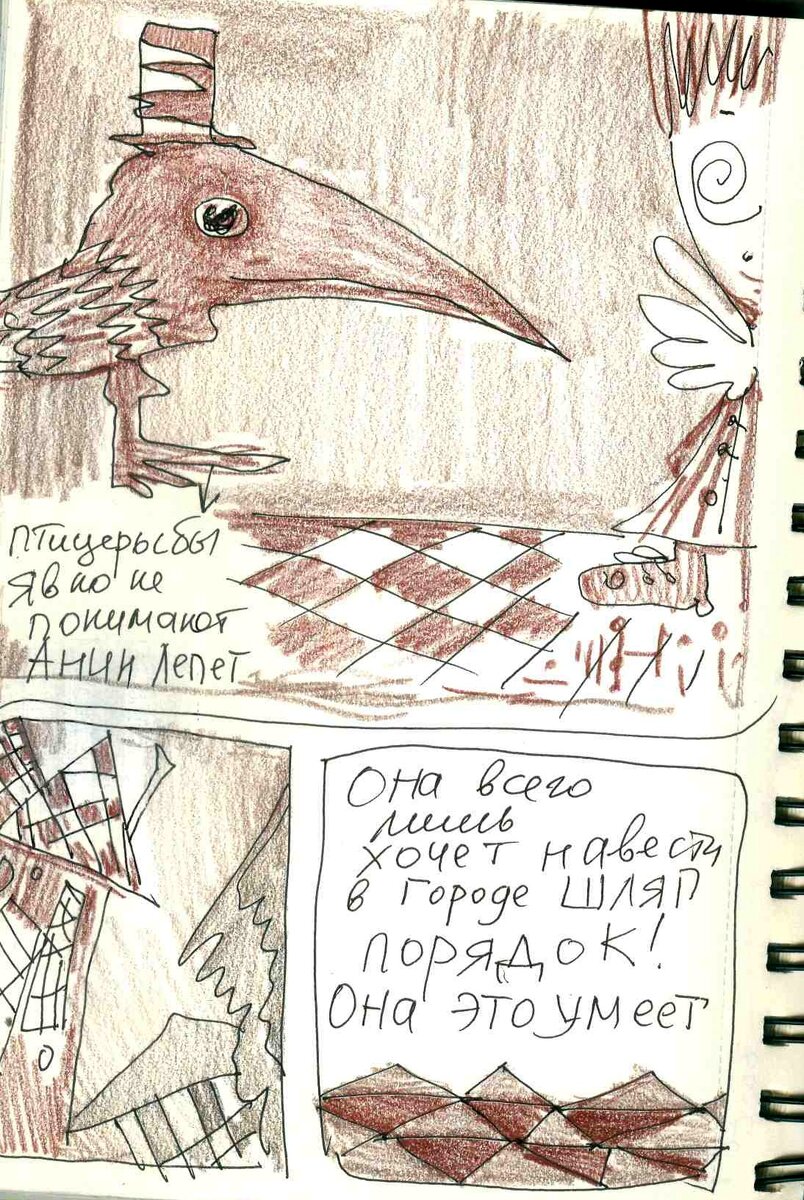 птицерыбы
явно не
понимают
Анин лепет
Она всего
лишь
хочет навести
в городе ШЛЯП
порядок!
Она это умеет